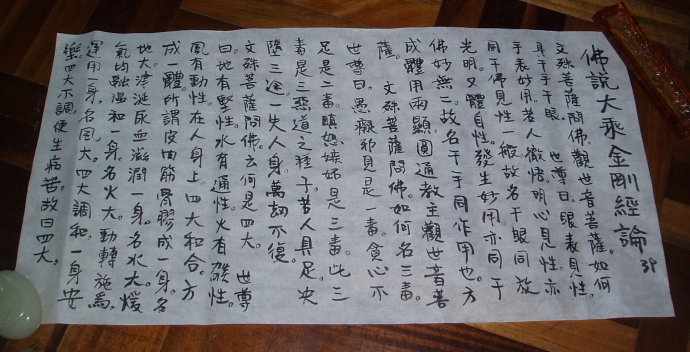 佛說大乘金剛經論 39
文殊菩薩問佛。觀世音菩薩。如何
具千手千眼。 世尊曰。眼表見性。
手表妙用。若人徹悟。明心見性。亦
同千佛見性一般。故名千眼同放
光明。又體自性。發生妙用。亦同千
佛妙無二。故名千手同作用也。方
成體用兩顯。圓通教主觀世音菩
薩。 文殊菩薩問佛。如何名三毒。
世尊曰。愚癡邪見是一毒。貪心不
足是二毒。瞋恕嫉妒是三毒。此三
毒是三惡道之種子。若人具足。決
墮三途。一失人身。萬劫不復。
文殊菩薩問佛。云何是四大。 世尊
曰。地有堅性。水有通性。火有焰性。
風有動性。在人身上。四大和合。方
成一體。所謂皮肉筋骨膠成一身。名
地大。津涎尿血滋潤一身。名水大。煖
氣均融溫和一身。名火大。動轉施為。
運用一身。名風大。四大調和。一身安
樂。四大不調。便生病苦。故曰四大。